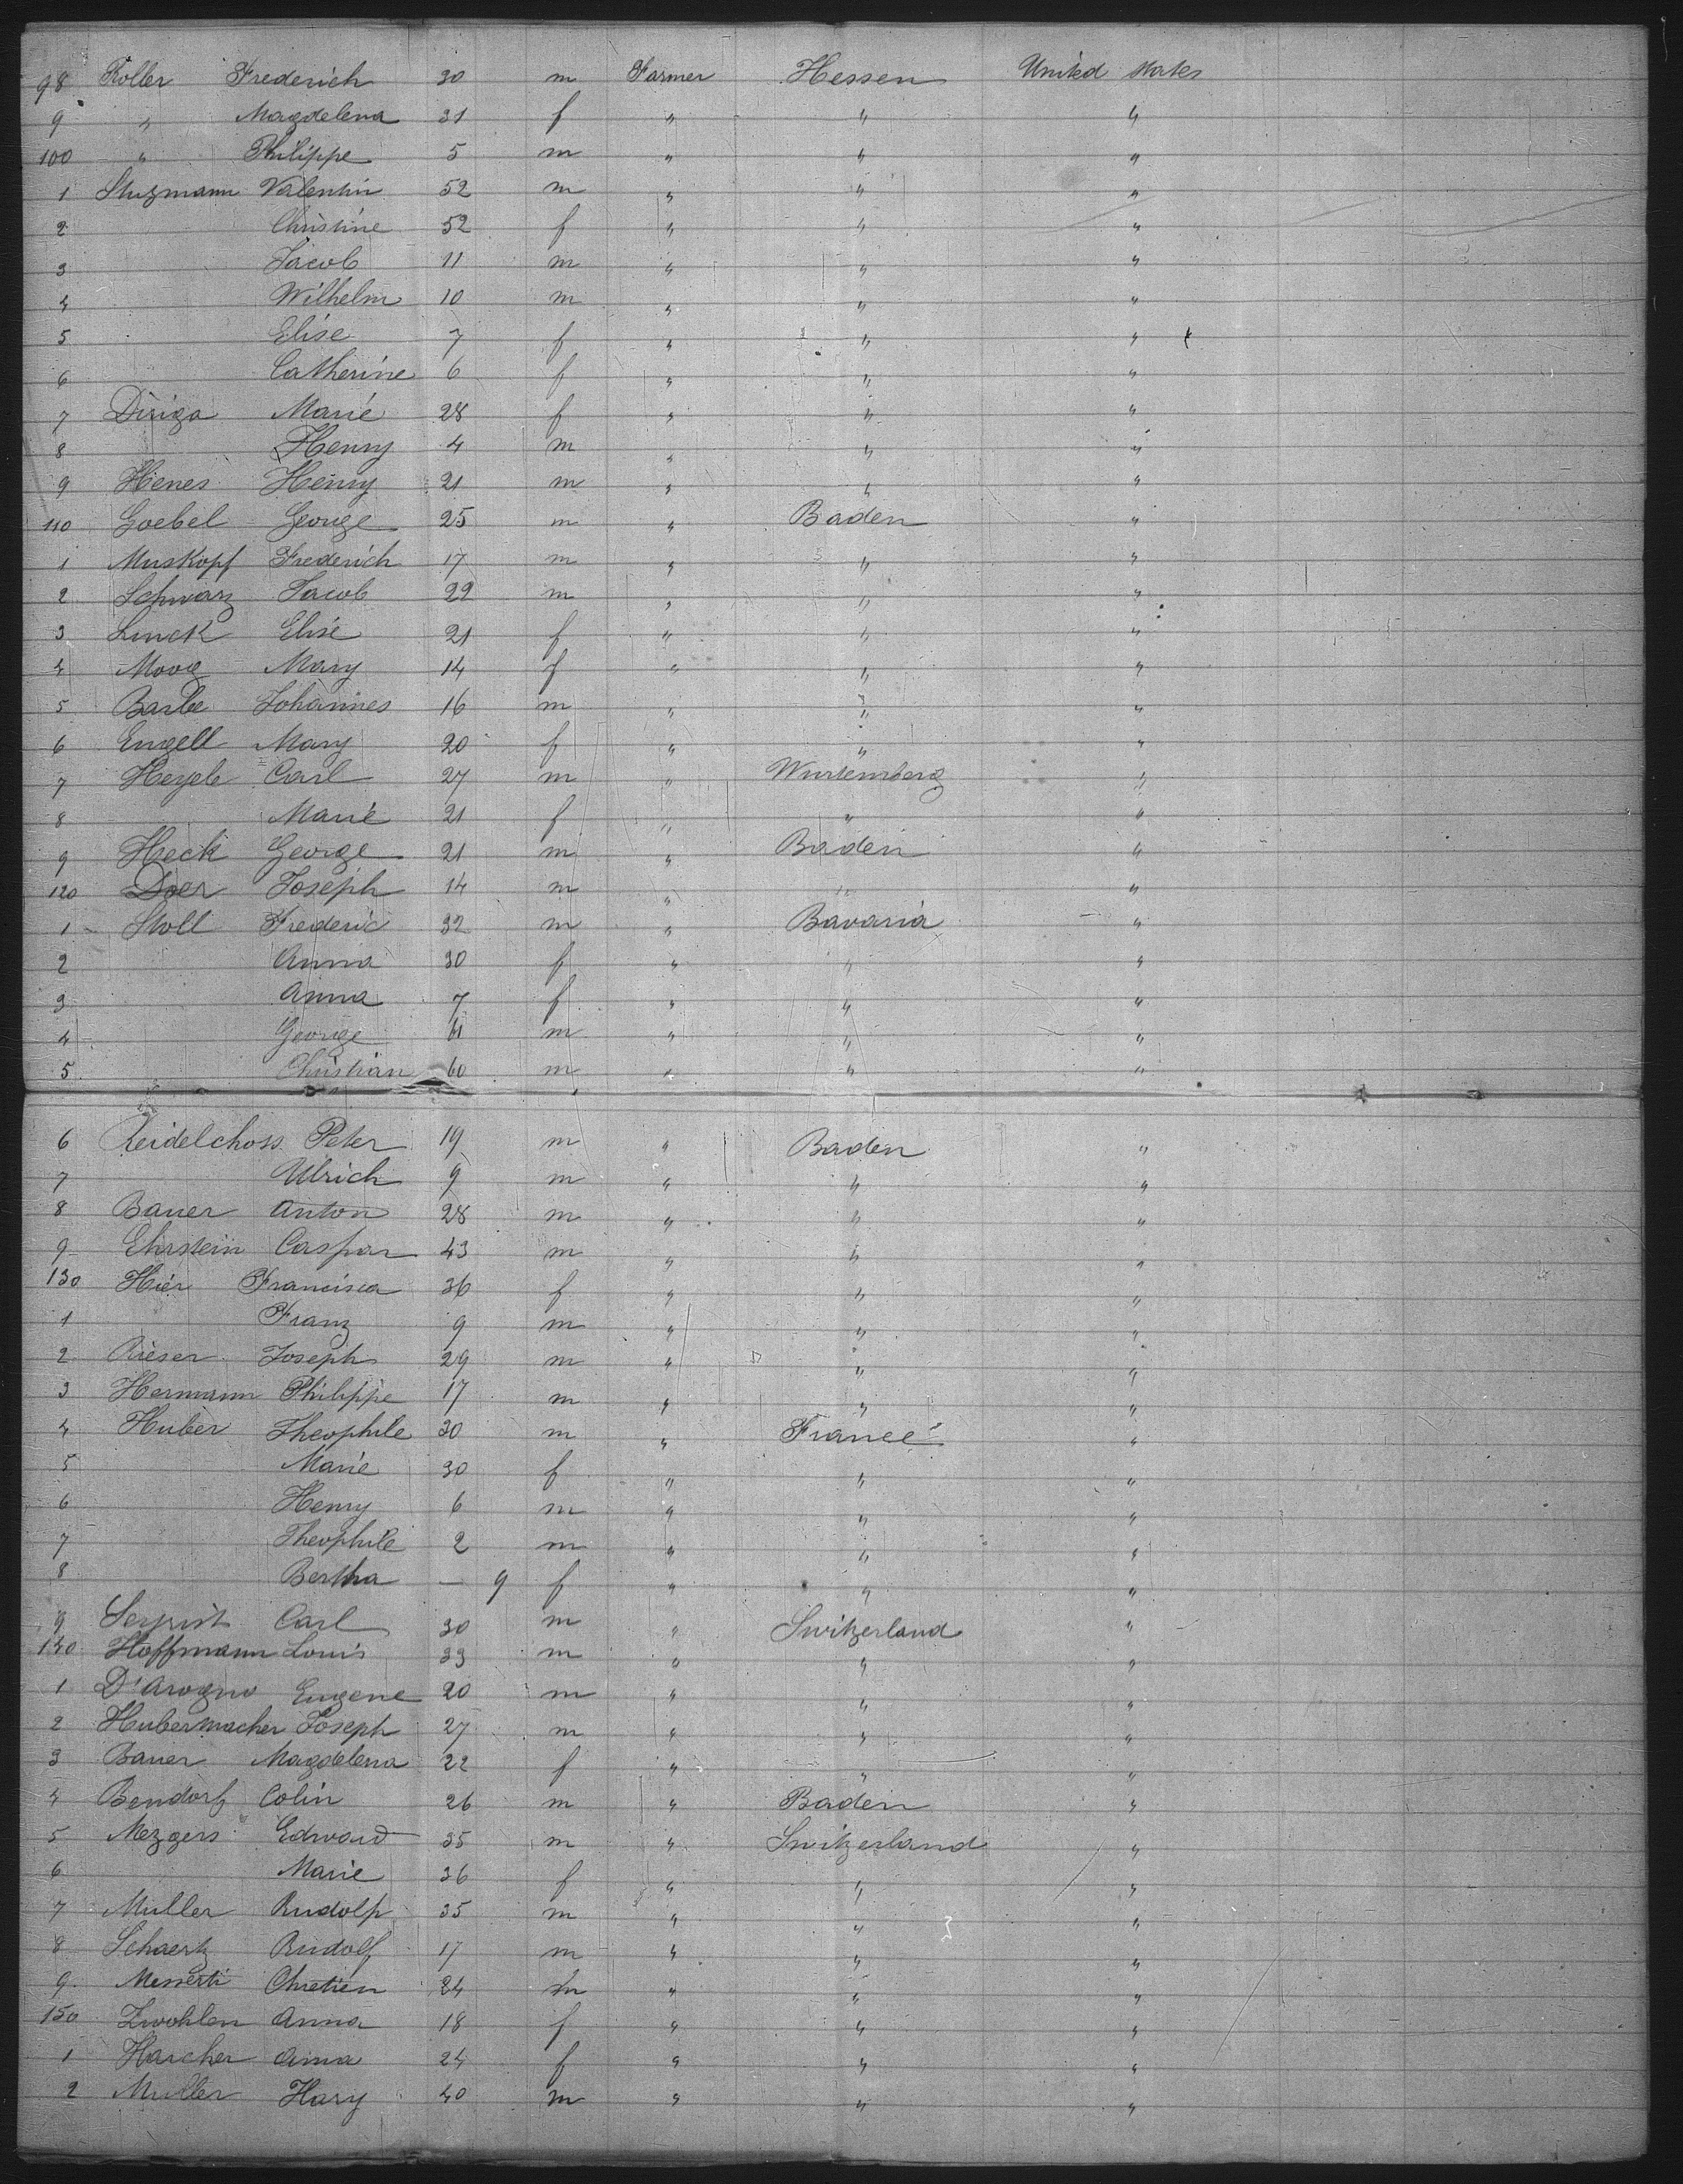 98 Roller Frederich 30 m Farmer Hessen United States
9 " Magdelena 31 f " " "
100 " Philippe 5 m " " "
1 Stuzmann Valentin 52 m " " "
2 Christine 52 f " " "
3 Jacob 11 m " " "
4 Wilhelm 10 m " " "
5 Elise 7 f " " "
6 Catherine 6 f " " "
7 Diriga Marie 28 f " " "
8 Henry 4 m " " "
9 Hienes Henry 21 m " " "
110 Goebel George 25 m " Baden "
1 Muskopf Frederich 17 m " " "
2 Schwarz Jacob 22 m " " "
3 Linck Elise 21 f " " "
4 Moog Mary 14 f " " "
5 Barbe Johannes 16 m " " "
6 Engell Mary 20 f " " "
7 Heyele Carl 27 m " Wurtemberg "
8 Marie 21 f " " "
9 Heck George 21 m " Baden "
120 Doer Joseph 14 m " " "
1 Stoll Frederic 32 m " Bavaria "
2 Anna 30 f " " "
3 Anna 7 f " " "
4 George 61 m " " "
5 Christian 60 m " " "
6 Reidelchoss Peter 19 m " Baden "
7 Ulrich 9 m " " "
8 Bauer Anton 28 m " " "
9 Ehrstein Caspar 43 m " " "
130 Hier Francisca 36 f " " "
1 Franz 9 m " " "
2 Rieser Joseph 29 m " " "
3 Hermann Philippe 17 m " " "
4 Huber Theophile 30 m " France "
5 Marie 30 f " " "
6 Henry 6 m " " "
7 Theophile 2 m " " "
8 Bertha — 9 f " " "
9 Carl 30 m " Switzerland "
140 Hoffmann Louis 33 m " " "
1 D'Arogno Eugene 20 m " " "
2 Hubermacher Joseph 27 m " " "
3 Bauer Magdelena 22 f " " "
4 Bendorf Colin 26 m " Baden "
5 Mezgers Edward 35 m " Switzerland "
6 Marie 36 f " " "
7 Muller Rudolp 35 m " " "
8 Schaertz Rudolf 17 m " " "
9 Messerti Chretien 24 m " " "
150 Zwohlen Anna 18 f " " "
1 Harcher Anna 24 f " " "
2 Muller Hary 40 m " " "